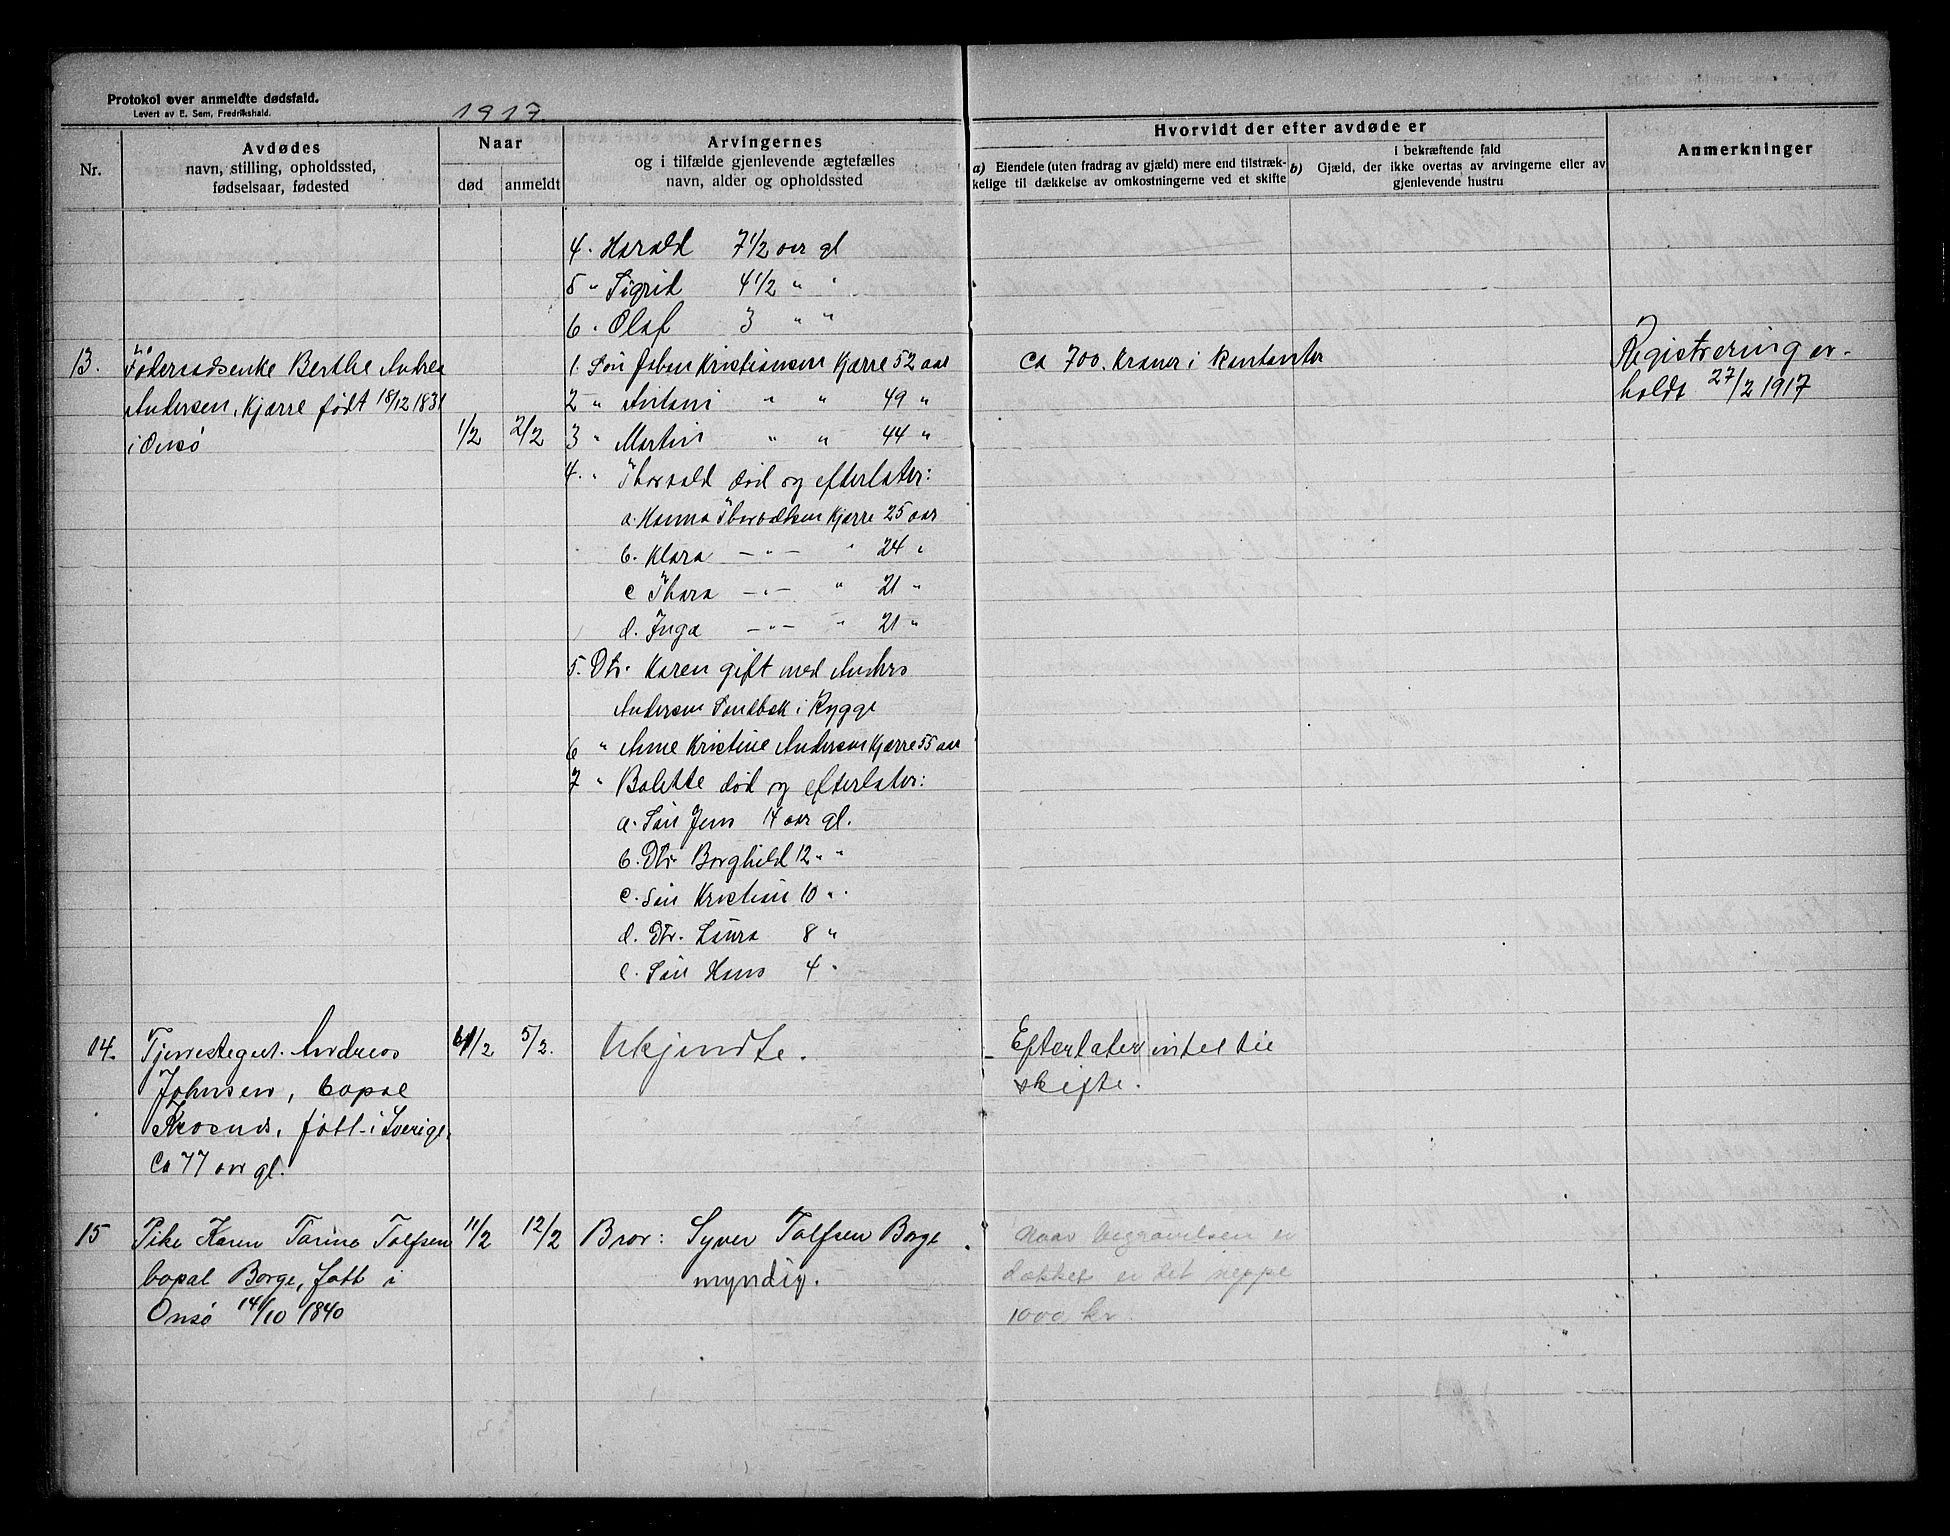 Protokol over anmeldte dødsfald.
Levert av E. Sem, Fredrikshald.
1917
Nr.
Avdødes
navn, stilling, opholdssted,
fødselsaar, fødested
Naar
død anmeldt
Arvingernes
og i tilfælde gjenlevende ægtefælles
navn, alder og opholdssted
Hvorvidt der efter avdøde er
a) Eiendele (uten fradrag av gjæld) mere end tilstræk-
kelige til dækkelse av omkostningerne ved et skifte
i bekræftende fald
b) Gjæld, der ikke overtas av arvingerne eller av
gjenlevende hustru
Anmerkninger
4. Harald 7 1/2 aar gl
5 " Sigrid 4 1/2 " "
6 . Olaf 3 " "
13. Föderaadsenke Berthe Andrea
Andersen, Kjærre født 18/12 1831
i Onsö 1/2 2/2
1. Sön Johan Kristiansen Kjærre 52 aar
2 " Antani " " 49 "
3 " Martin " " 44 "
4. " Thorvald död og efterlater:
a. Hanna Thorvaldsen Kjærre 25 aar
b. Klara — " — " 24 "
c Thora — " — " 21 "
d. Inga — " — " 21 "
5. Dtr. Karen gift med Anders
Andersen Sandbæk i Rygge
6 " Anne Kristine Andersen Kjærre 55 aar
7 " Bolette död og efterlater:
a. Sön Jens 14 aar gl.
b. Dtr Borghild 12 " "
c. Sön Kristian 10 " .
d. Dtr. Laura 8 "
e. Sön Hans 4 "
ca 700. Kroner i Kontanter
Registrering er-
holdt 27/2 1917
14. Tjenestegut. Andreas
Johnsen, bopæl
født i Sverige,
ca 77 aar gl.
4/2 5/2.
Ukjendte.
Efterlater intet til
skifte.
15 Pike Karen Tarine Tolfsen
bopæl Borge, født i
Onsø 14/10 1840
11/2 12/2
Bror: Syver Tolfsen Borge
myndig.
Naar begravelsen er
dækket er det neppe
1000 kr.